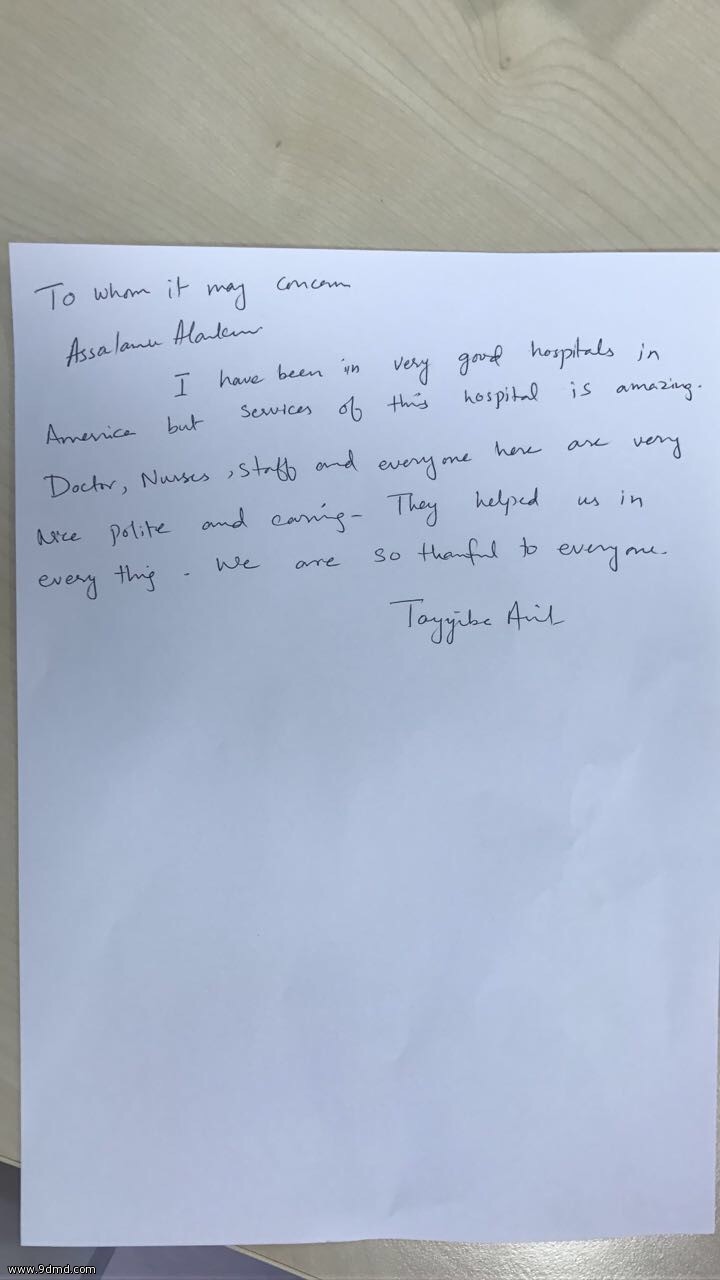 To whom it may concern
Assalamu Alaikum
I have been in very good hospitals in
America but services of this hospital is amazing.
Doctor, Nurses, staff and everyone here are very
Nice polite and caring- They helped us in
every thig - We are so thanful to everyone.
Tayyiba
www.9dmd.com